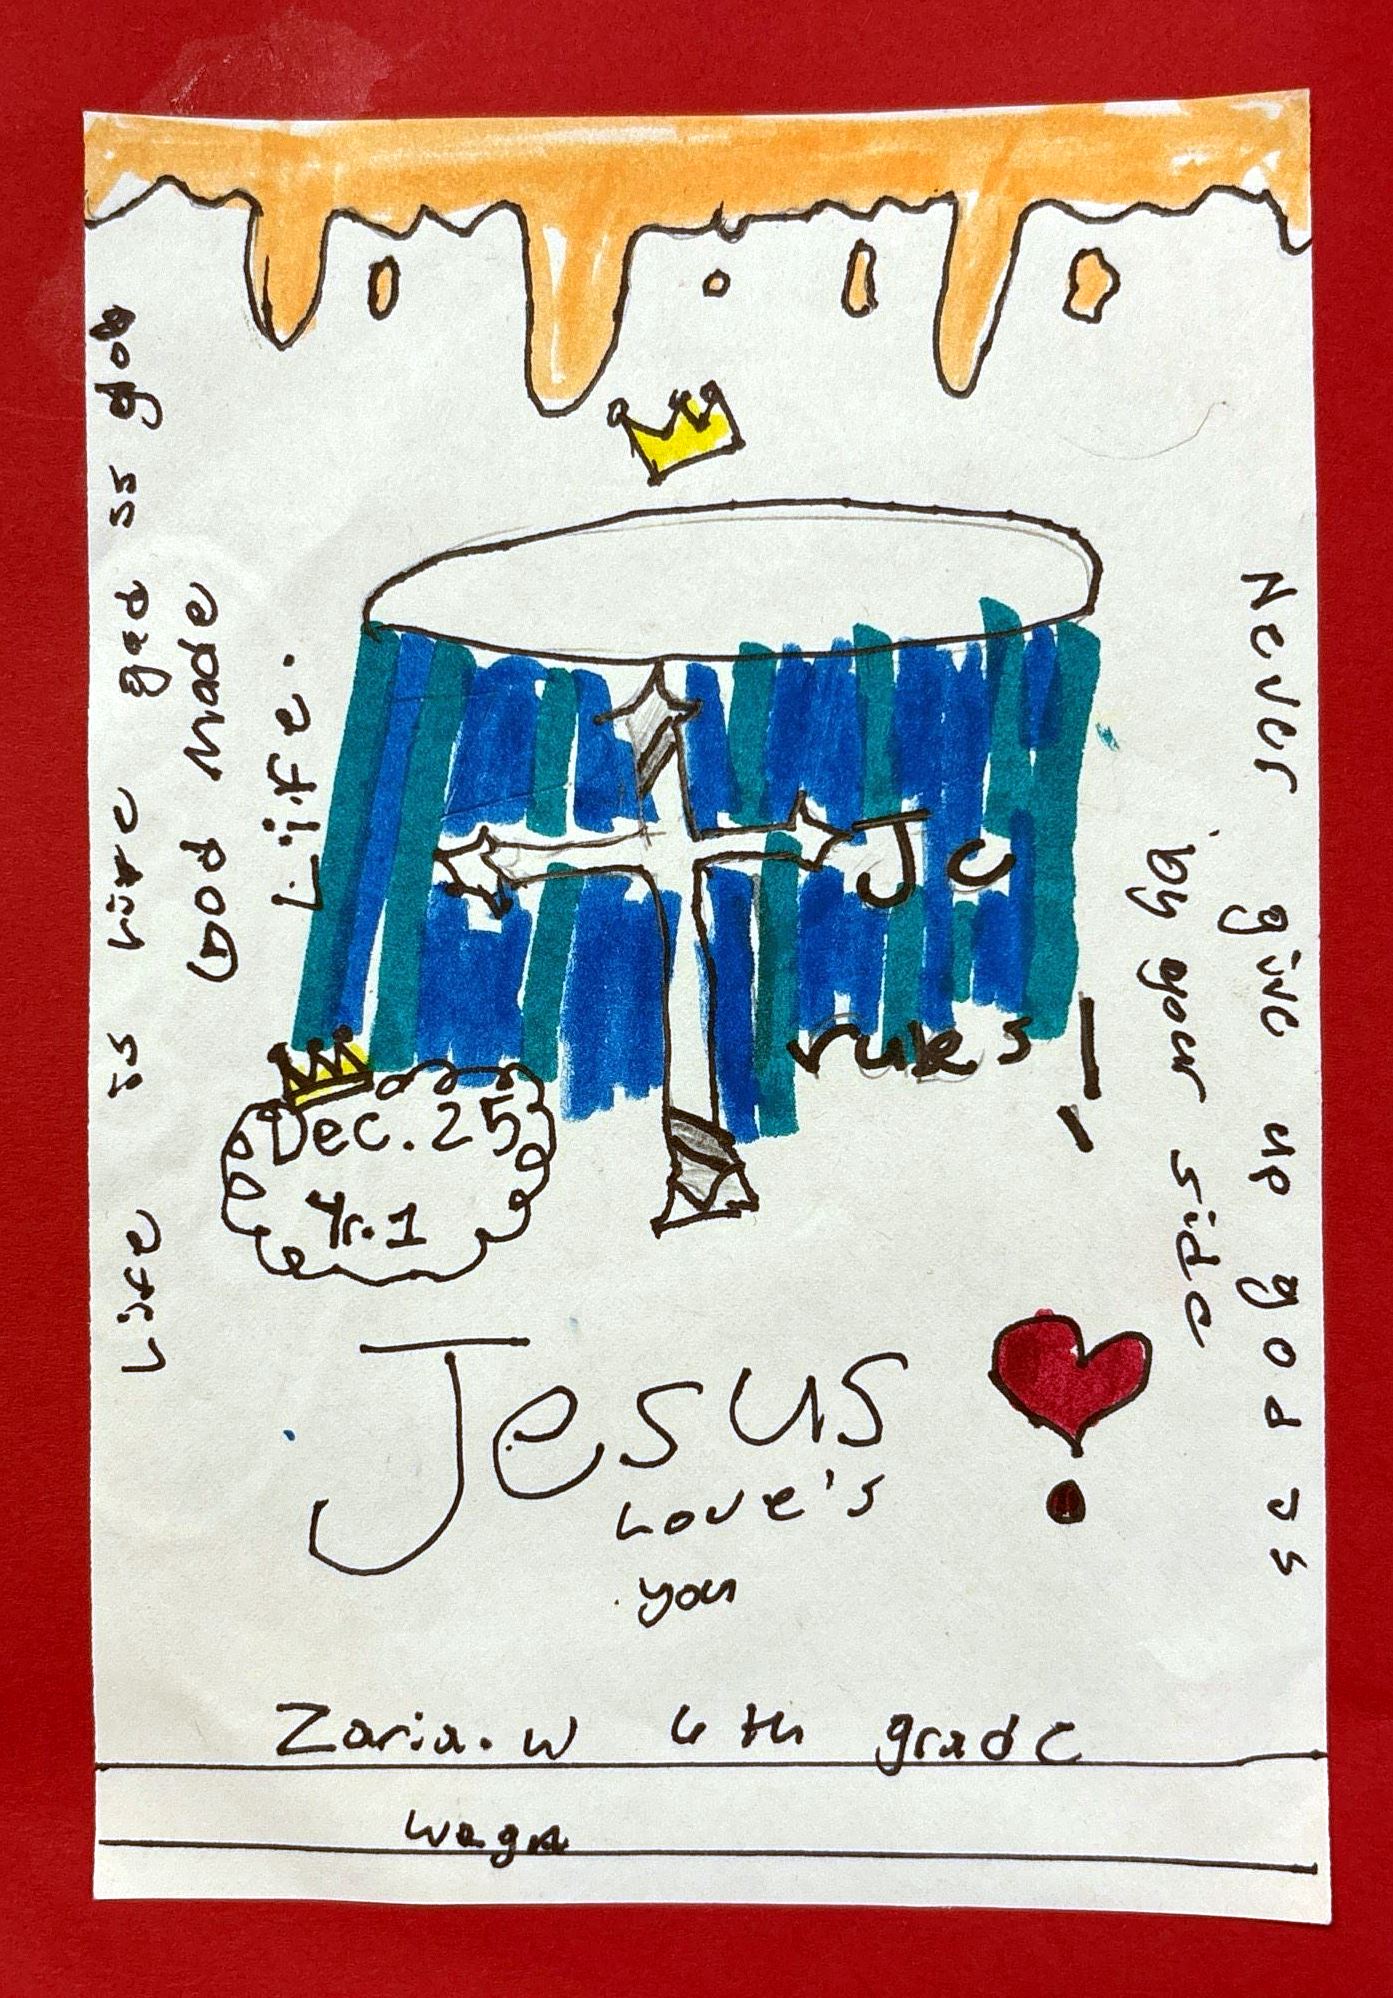 Life is gad is
God made
Life.
JC
rules!
Dec. 25
Yr. 1
Never give up god is
by your side
Jesus
Love's
you
Zaria. W 6th grade